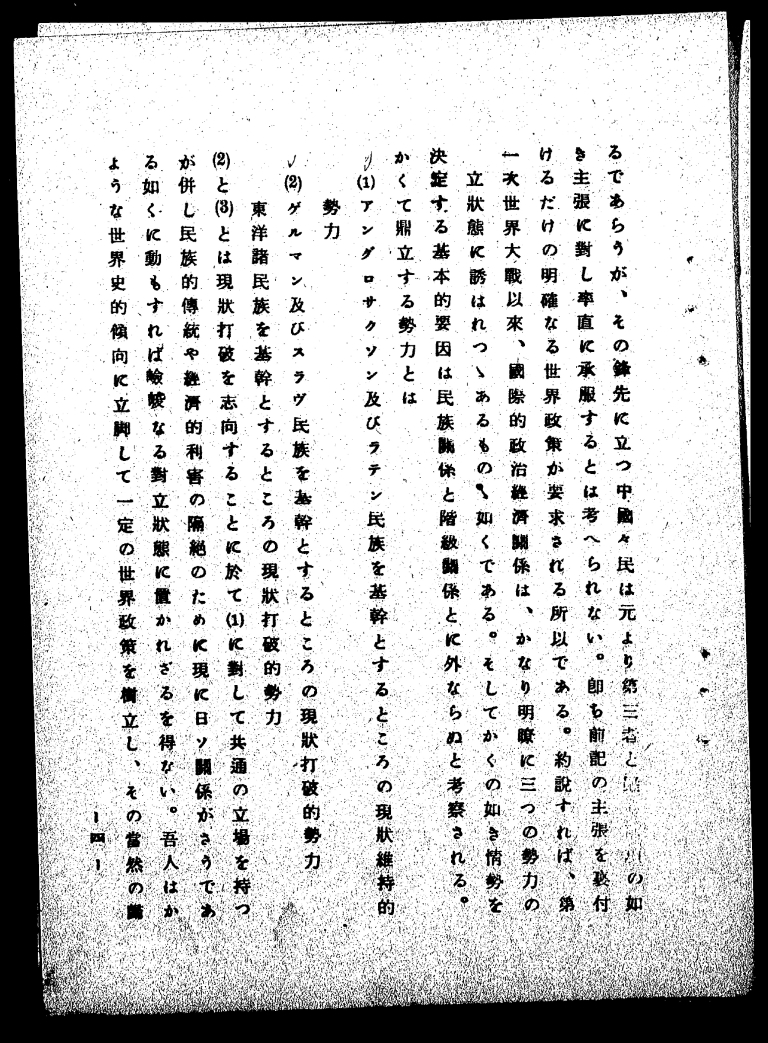 るであらうが、その鋒先に立つ中國々民は元より第三者と の如
き主張に對し率直に承服するとは考へられない。卽ち前記の主張を裏付
けるだけの明確なる世界政策が要求される所以である。約說すれば、第
一次世界大戰以來、國際的政治經濟關係は、かなり明瞭に三つの勢力の
立狀態に誘はれつゝあるものゝ如くである。そしてかくの如き情勢を
決定する基本的要因は民族關係と階級關係とに外ならぬと考察される。
かくて鼎立する勢力とは
(1)アングロサクソン及びラテン民族を基幹とするところの現狀維持的
勢力
(2)ゲルマン及びスラヴ民族を基幹とするところの現狀打破的勢力
東洋諸民族を基幹とするところの現狀打破的勢力
(2)と(3)とは現狀打破を志向することに於て(1)に對して共通の立場を持つ
が併し民族的傳統や經濟的利害の隔絶のために現に日ソ關係がさうであ
る如くに動もすれば嶮峻なる對立狀態に置かれざるを得ない。吾人はか
ような世界史的傾向に立脚して一定の世界政策を樹立し、その當然の
―四―